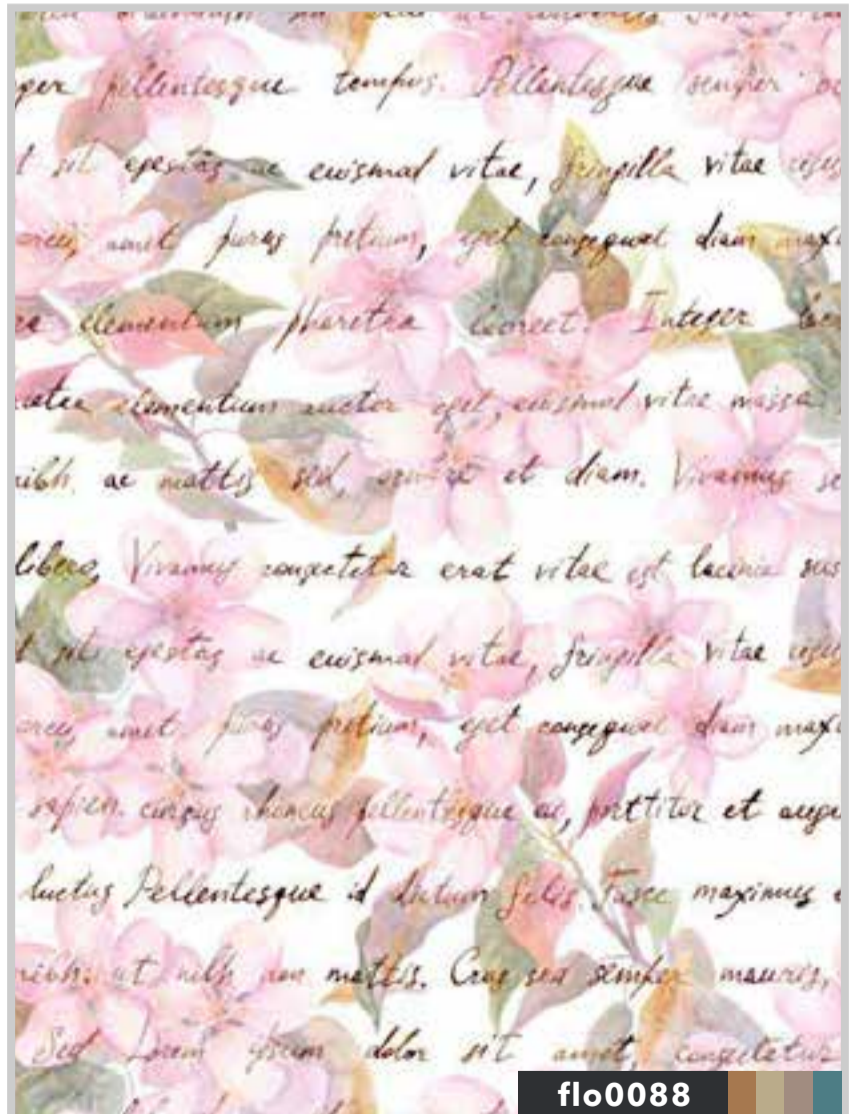 ger pellentesque tempus. Pellentesque semper
t sit egestas ac euismod vitae, fringilla vitae
arcu, amet purus pretium, eget consequat diam
elementum pharetra laoreet. Integer
elementum auctor eget, euismod vitae massa
nibh. ac mattis sed, et diam. Vivamus se
libero, Vivamus consectetur erat vitae est lacinia sus
t sit egestas ac euismod vitae, fringilla vitae
arcu, amet purus pretium, eget consequat diam
sapien. cursus rhoncus pellentesque ac, porttitor et augue
luctus Pellentesque id dictum felis. Fusce maximus
nibh. ut nibh non mattis. Cras sed semper mauris,
Sed Lorem ipsum dolor sit amet, consectetur
flo0088